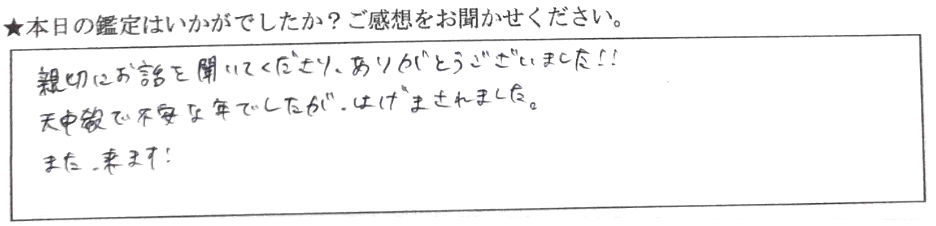 ★本日の鑑定はいかがでしたか？ご感想をお聞かせください。
親切にお話を聞いてくださり、ありがとうございました!!
天中殺で不安な年でしたが、はげまされました。
また、来ます!